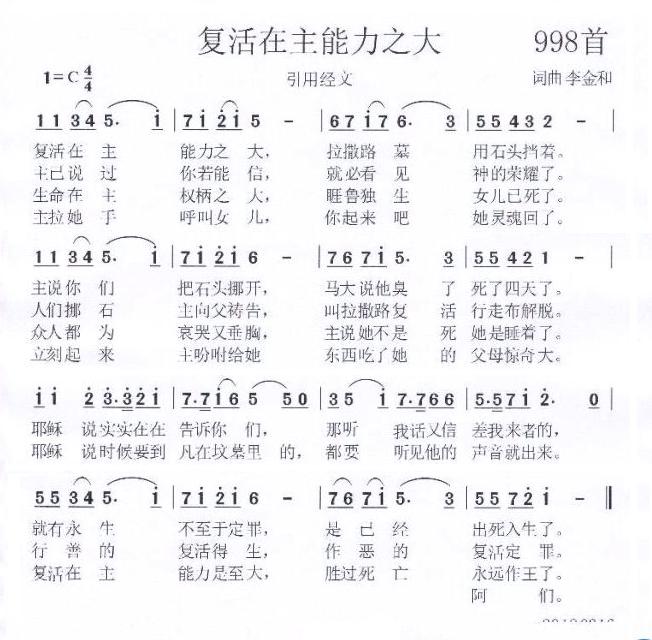 复活在主能力之大 998首
1=C 4/4 引用经文 词曲 李金和
1 1 3 4 5· i | 7 i 2 i 5 - | 6 7 i 7 6· 3 | 5 5 4 3 2 - |
复活在 主 能力之 大， 拉撒路 墓 用石头挡着。
主已说 过 你若能 信， 就必看 见 神的荣耀了。
生命在 主 权柄之 大， 睚鲁独 生 女儿已死了。
主拉她 手 呼叫女 儿， 你起来 吧 她灵魂回了。
1 1 3 4 5· i | 7 i 2 i 6 - | 7 6 7 i 5· 3 | 5 5 4 2 1 - |
主说你 们 把石头挪开， 马大说他臭 了 死了四天了。
人们挪 石 主向父祷告， 叫拉撒路复 活 行走布解脱。
众人都 为 哀哭又垂胸， 主说她不是 死 她是睡着了。
立刻起 来 主吩咐给她 东西吃了她 的 父母惊奇大。
i i 2 3·3 2 i | 7·7 i 6 5 5 0 | 3 5 i 7·7 6 6 | 5·5 7 i 2· 0 |
耶稣 说实实在在 告诉你 们， 那听 我话又信 差我来者的，
耶稣 说时候要到 凡在坟墓里 的， 都要 听见他的 声音就出来。
5 5 3 4 5· i | 7 i 2 i 6 - | 7 6 7 i 5· 3 | 5 5 7 2 i - ‖
就有永 生 不至于定罪， 是 已经 出死入生了。
行 善的 复活得 生， 作 恶的 复活定 罪。
复活在 主 能力是至大， 胜过死 亡 永远作王了。
阿 们。